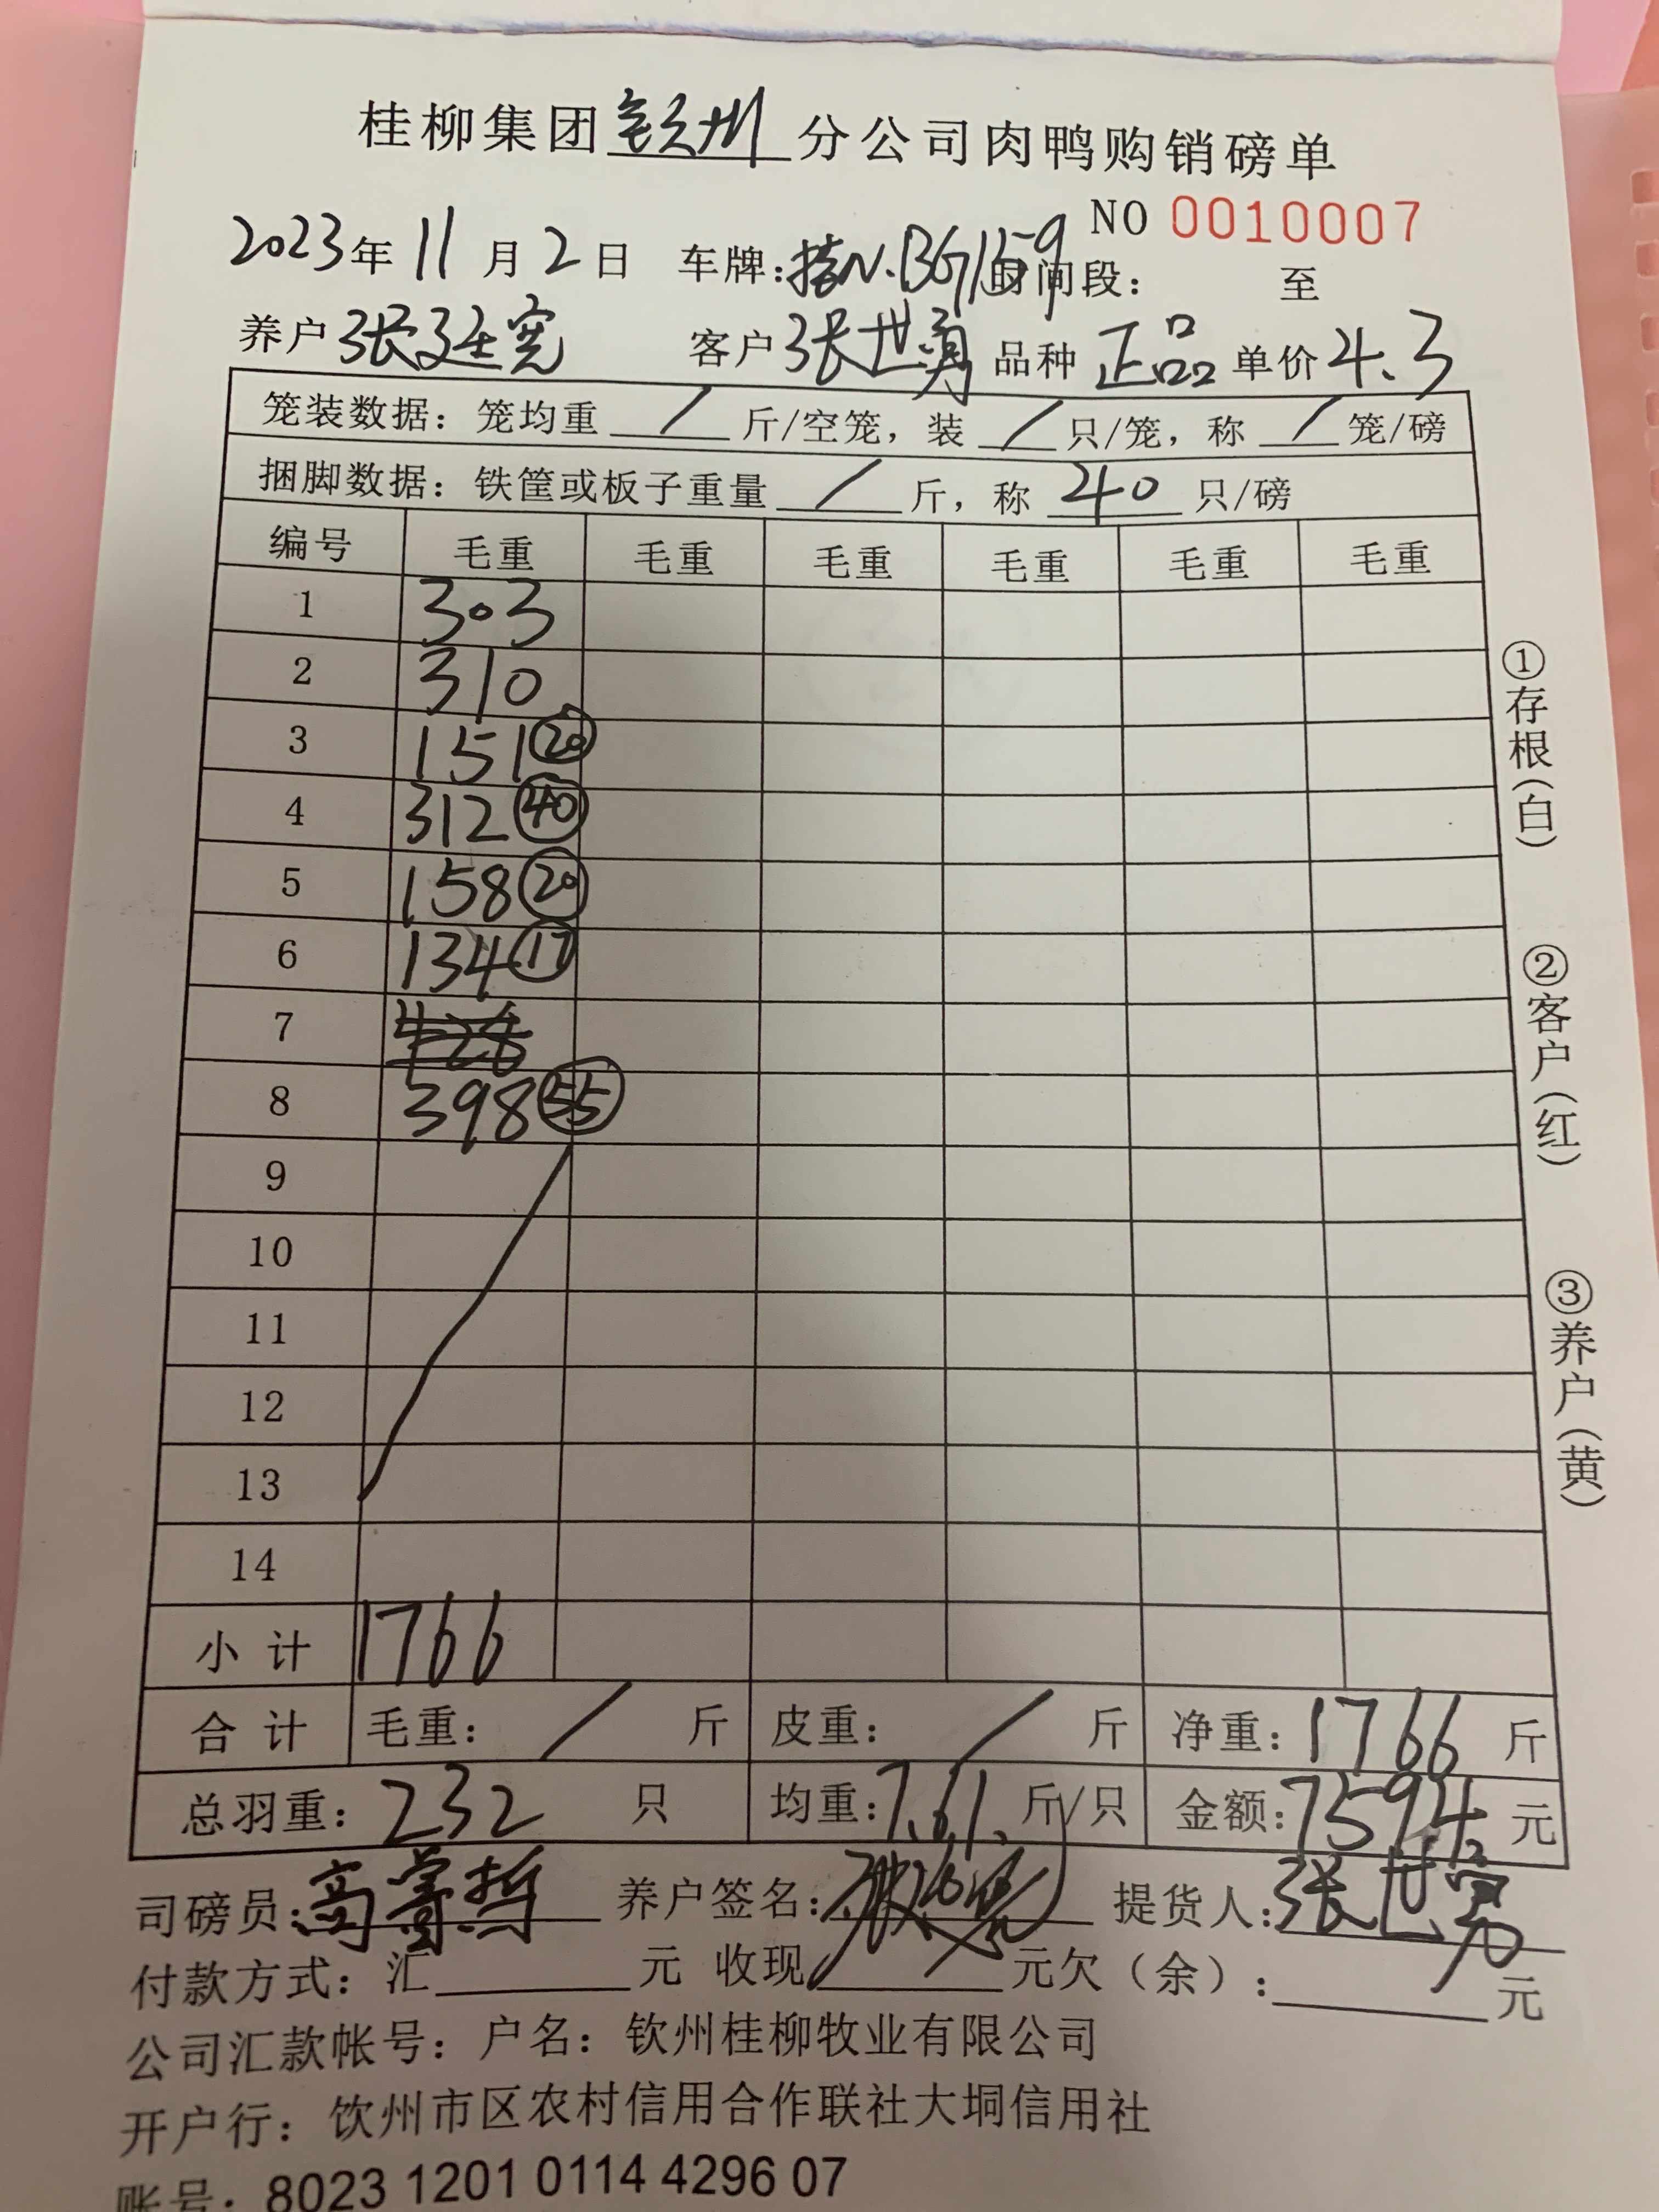 桂柳集团钦州分公司肉鸭购销磅单
NO 0010007
2023年11月2日 车牌:桂N.BG1159 时间段: 至
养户张廷宪 客户张世勇 品种 正品 单价4.3
笼装数据: 笼均重 / 斤/空笼, 装 / 只/笼, 称 / 笼/磅
捆脚数据: 铁筐或板子重量 / 斤, 称 40 只/磅
编号 毛重 毛重 毛重 毛重 毛重 毛重
1 303
2 310
3 151 20
4 312 40
5 158 20
6 134 17
7
8 398 55
9
10
11
12
13
14
小计 1766
合计 毛重: / 斤 皮重: / 斤 净重: 1766 斤
总羽重: 232 只 均重: 7.61. 斤/只 金额: 7594 元
司磅员: 高 哲 养户签名: 提货人: 张世勇
付款方式: 汇 元 收现 元欠(余): 元
公司汇款帐号: 户名: 钦州桂柳牧业有限公司
开户行: 钦州市区农村信用合作联社大垌信用社
账号: 8023 1201 0114 4296 07
①存根(白)
②客户(红)
③养户(黄)